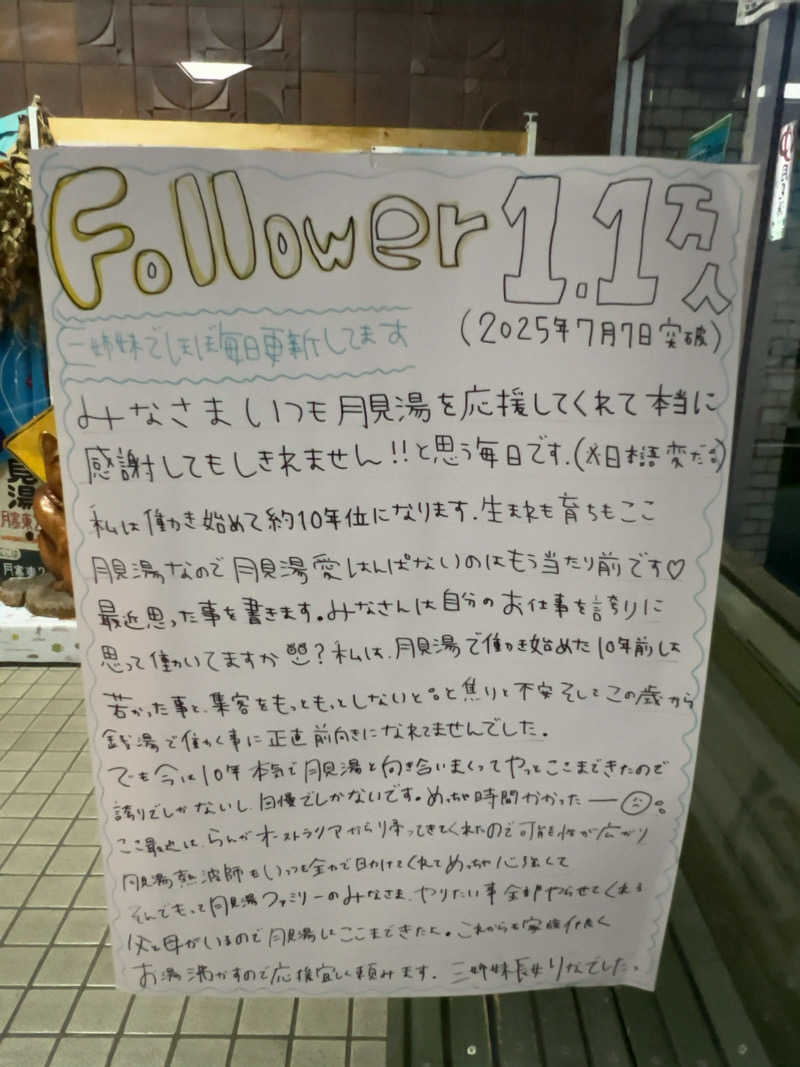 Follower 1.1万人
三姉妹でほぼ毎日更新してます
(2025年7月7日突破)
みなさまいつも月見湯を応援してくれて本当に
感謝してもしきれません!!と思う毎日です.(※日本語変だ。)
私は働き始めて約10年位になります.生まれも育ちもここ
月見湯なので月見湯愛はんぱないのはもう当たり前です♡
最近思った事を書きます。みなさんは自分のお仕事を誇りに
思って働いてますか?私は.月見湯で働き始めた10年前は
若かった事と、集客をもっともっとしないと。と焦りと不安そしてこの歳から
銭湯で働く事に正直前向きになれてませんでした.
でも今は10年本気で月見湯と向き合いまくってやっとここまできたので
誇りでしかないし、自慢でしかないです。めっちゃ時間かかったー。
ここ最近は、らんがオーストラリアから帰ってきてくれたので可能性が広がり
月見湯熱波師もいつも全力で助けてくれてめっちゃ心強くて
そんでもって月見湯ファミリーのみなさま、やりたい事全部やらせてくれる
父と母がいるので月見湯はここまできたよ。これからも家族仲良く
お湯沸かすので応援宜しく頼みます.三姉妹長女りなでした。
見湯